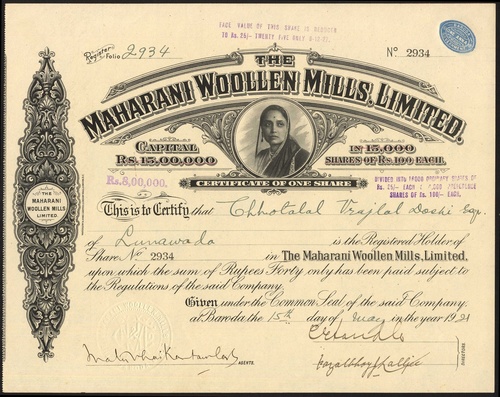 FACE VALUE OF THIS SHARE IS REDUCED
TO Rs. 25/- TWENTY FIVE ONLY
Register
Folio 2934
No. 2934
THE
MAHARANI WOOLLEN MILLS, LIMITED.
CAPITAL
RS. 15,00,000
IN 15,000
SHARES OF RS. 100 EACH.
Rs. 8,00,000.
CERTIFICATE OF ONE SHARE
DIVIDED INTO ORDINARY SHARES OF
Rs. 25/- EACH PREFERENCE
SHARES OF Rs. 100/- EACH.
THE
MAHARANI
WOOLLEN MILLS
LIMITED.
This is to Certify that Chhotalal Vrajlal Doshi Esqr.
of Lunawada is the Registered Holder of
Share No. 2934 in The Maharani Woollen Mills, Limited,
upon which the sum of Rupees Forty only has been paid subject to
the Regulations of the said Company.
Given under the Common Seal of the said Company,
at Baroda the 15th day of May in the year 1921
AGENTS.
DIRECTORS.